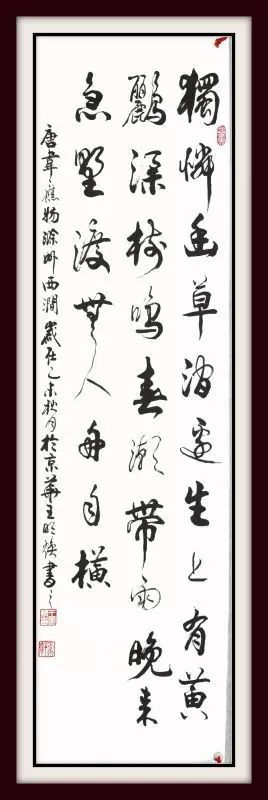 獨憐幽草澗邊生上有黃
鸝深樹鳴春潮帶雨晚來
急野渡無人舟自橫
唐韋應物滁州西澗歲在乙未秋月於京華王明書